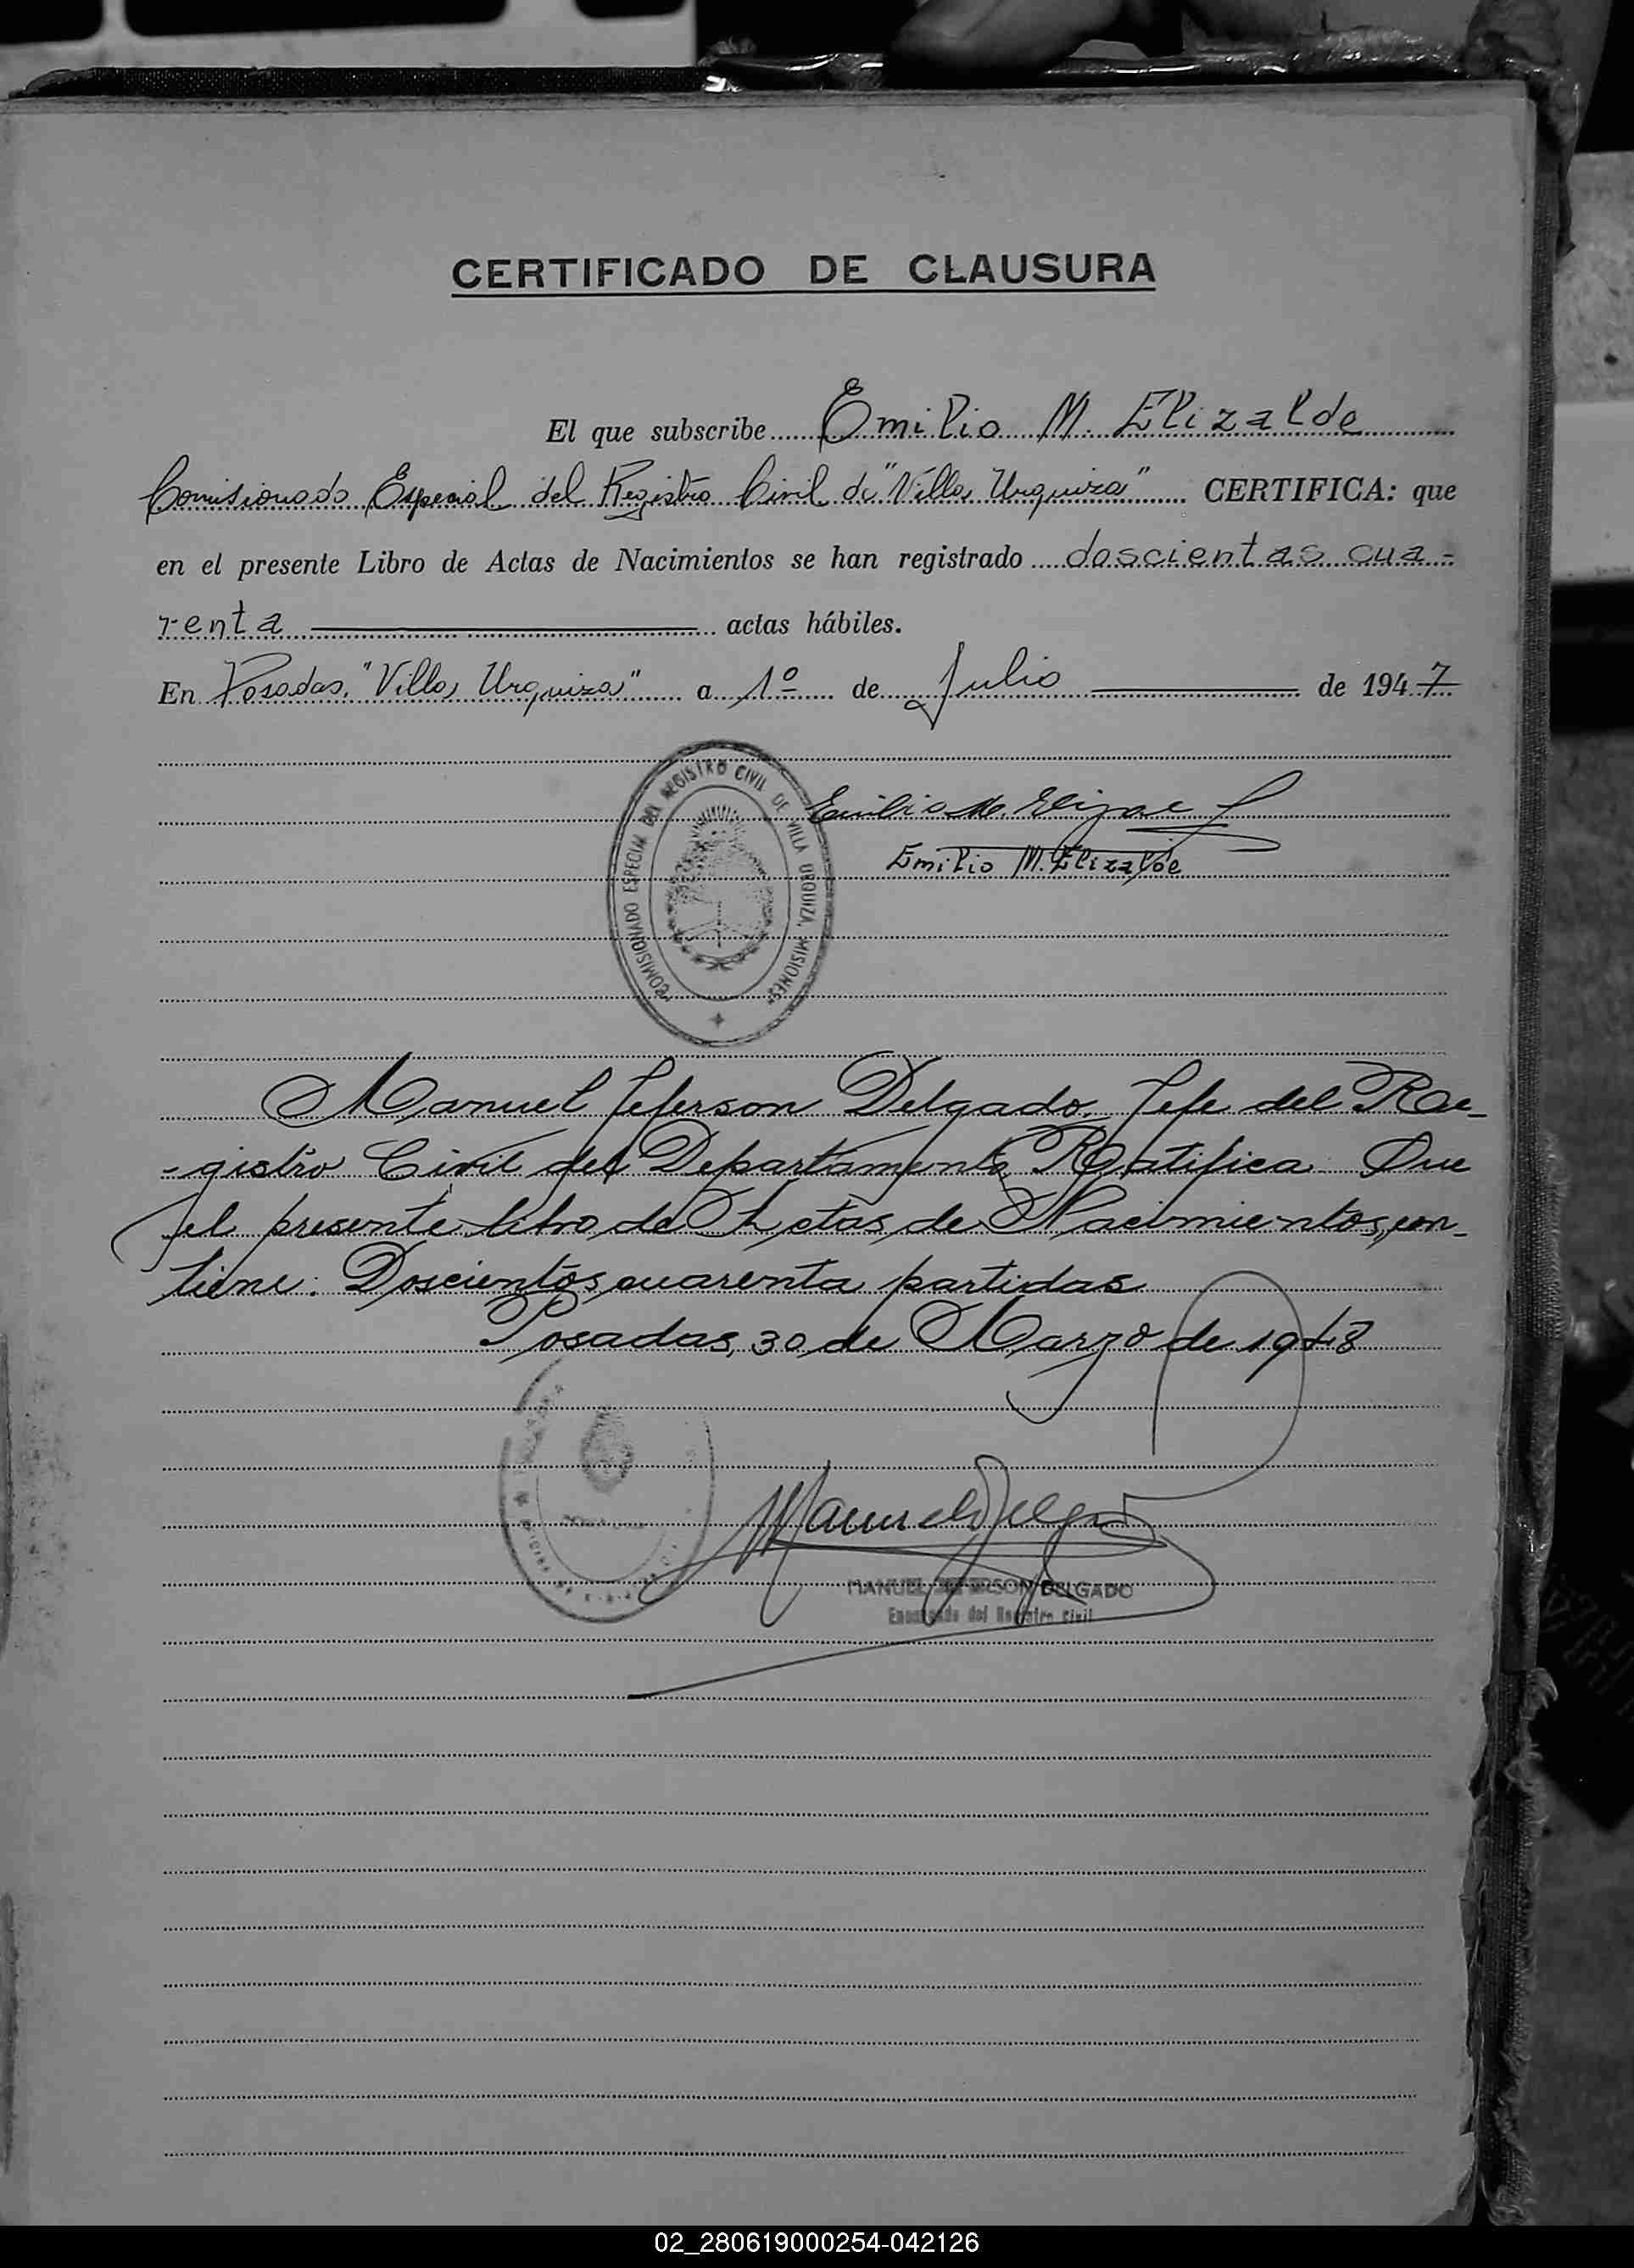 CERTIFICADO DE CLAUSURA
El que subscribe Emilio M. Elizalde
Comisionado Especial del Registro Civil de "Villa Urquiza" CERTIFICA: que
en el presente Libro de Actas de Nacimientos se han registrado doscientas cua-
renta actas hábiles.
En Posadas, "Villa Urquiza" a 1º de Julio de 1947
COMISIONADO ESPECIAL DEL REGISTRO CIVIL DE VILLA URQUIZA, MISIONES
Emilio M. Elizalde
Manuel Jeferson Delgado, Jefe del Re-
-gistro Civil del Departamento Ratifica Que
el presente libro de Actas de Nacimientos, con-
tiene: Doscientos cuarenta partidas
Posadas, 30 de Marzo de 1948
Manuel J Delgado
MANUEL JEFERSON DELGADO
Encargado del Registro Civil
02_280619000254-042126